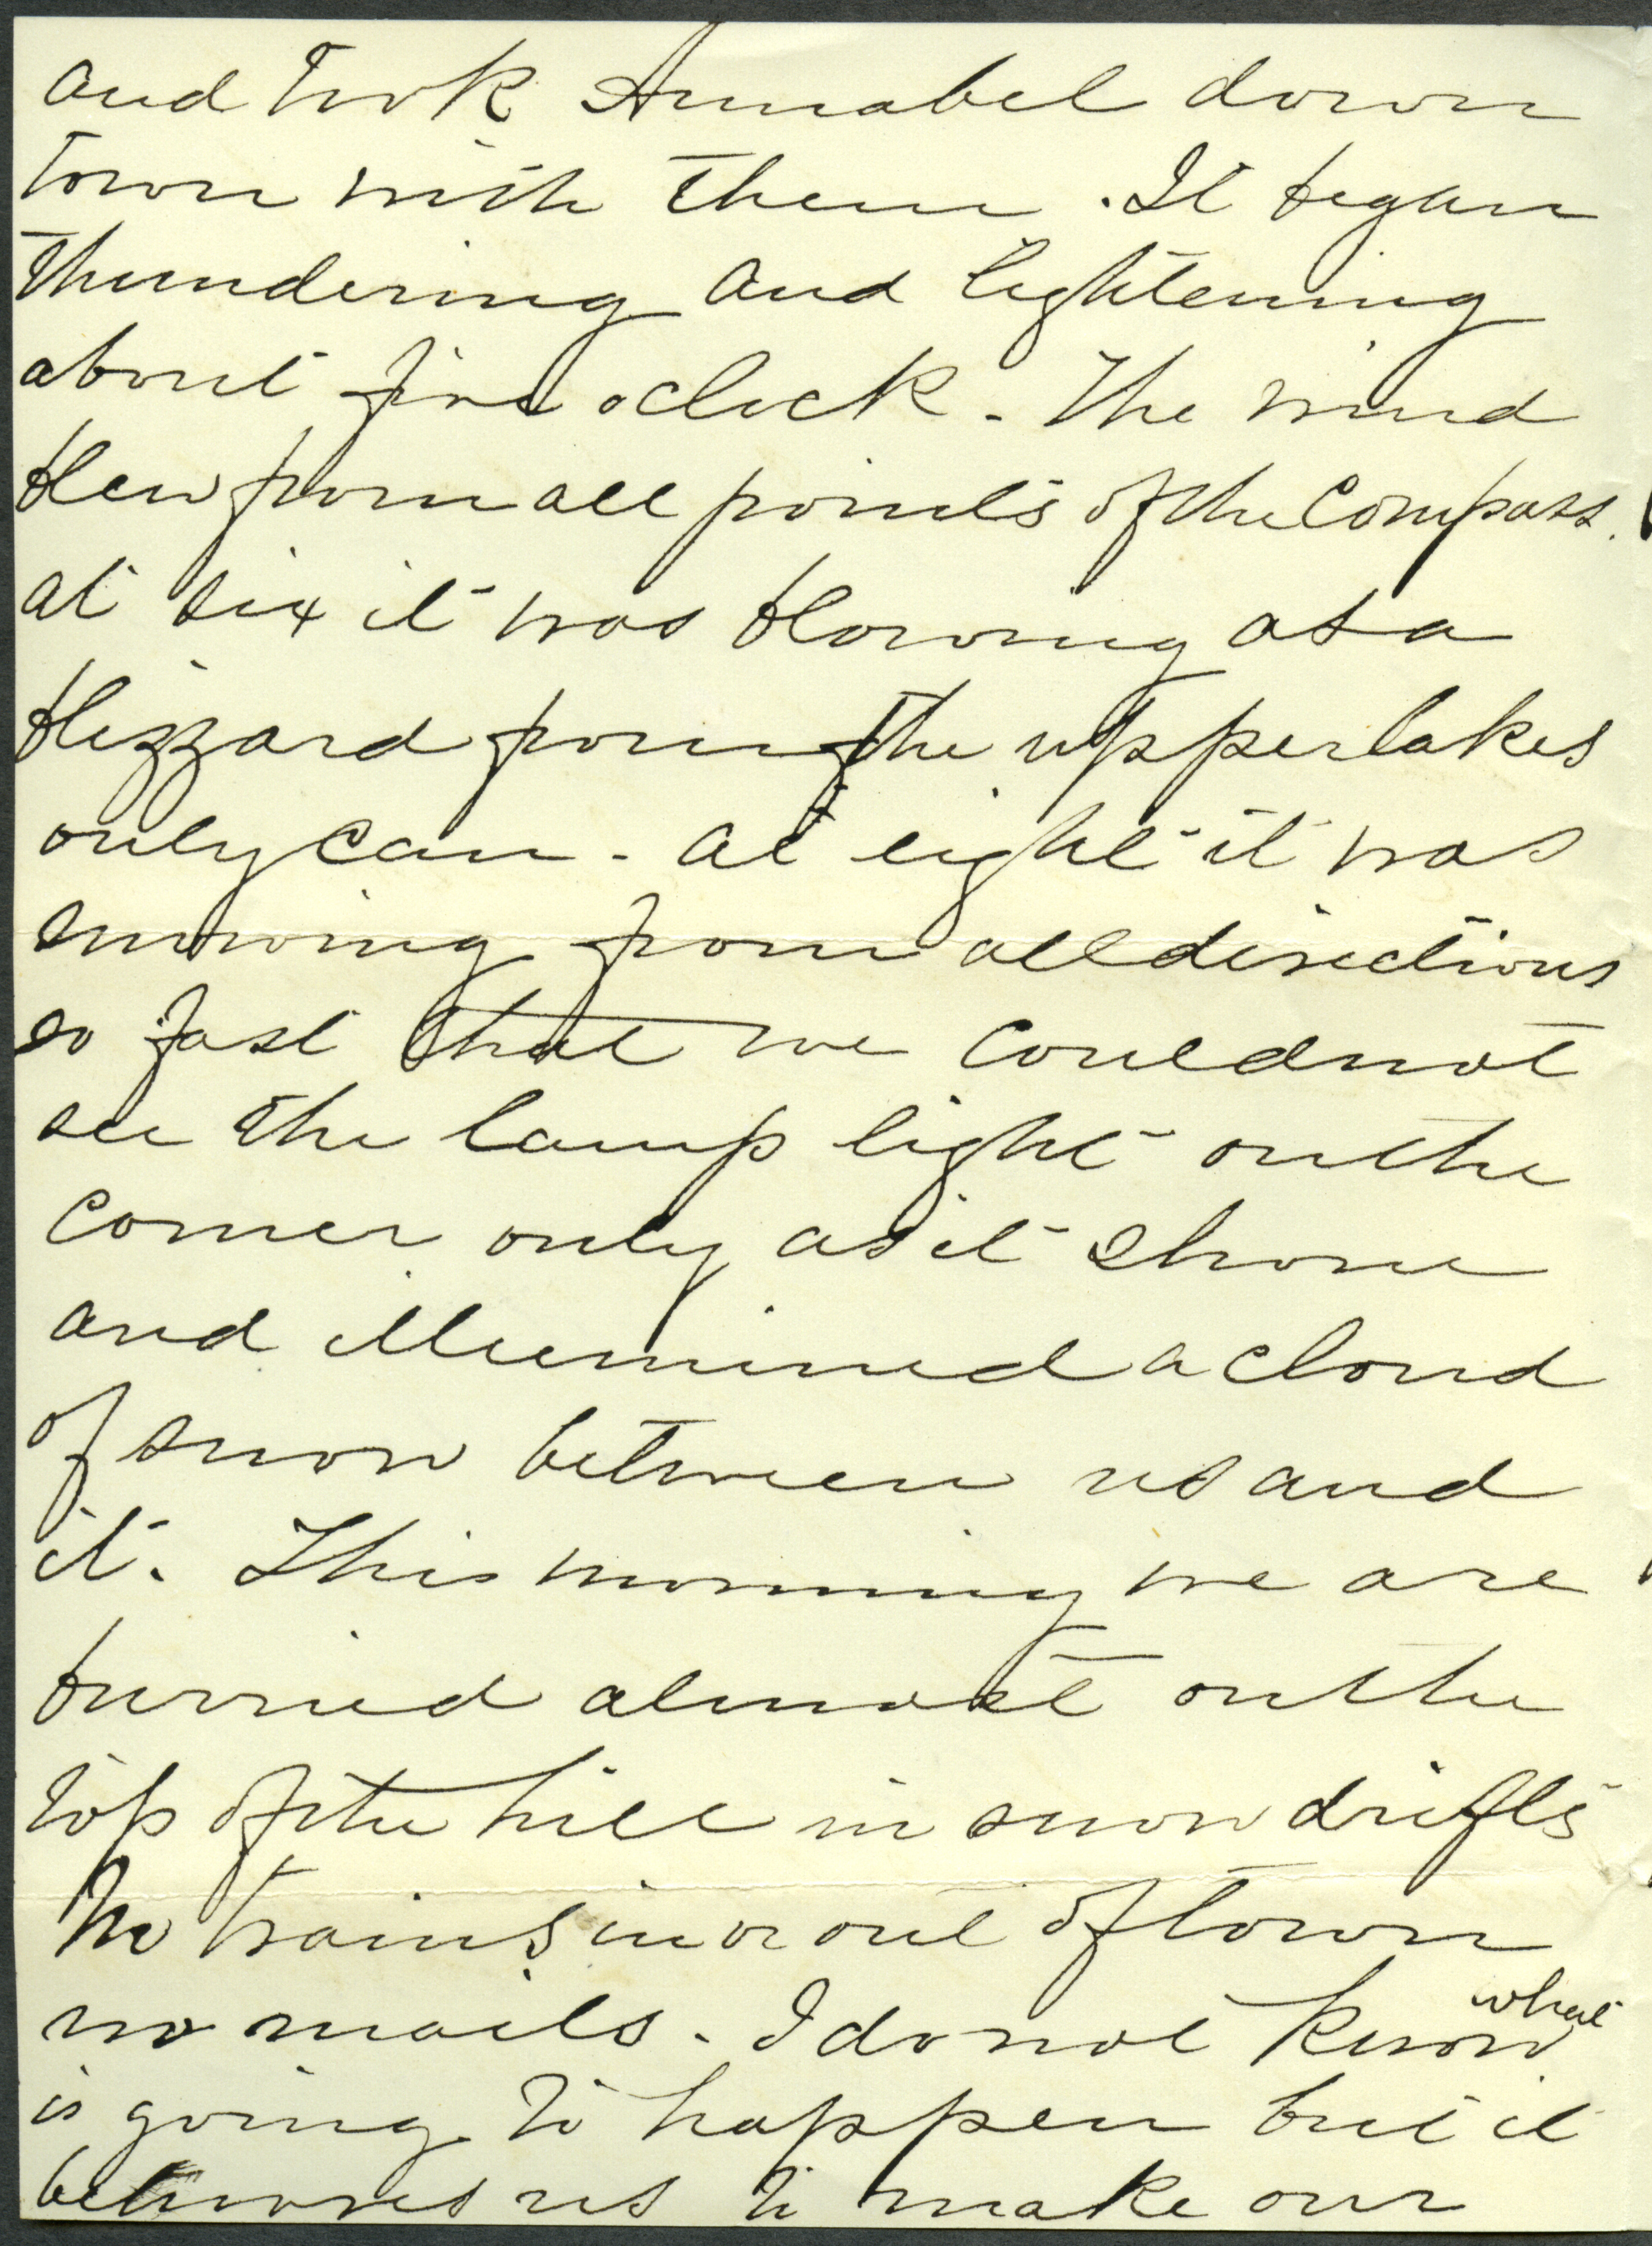 and took Annabel down
town with them. It began
thundering and lightening
about five oclock. The wind
blew from all points of the Compass.
at six it was blowing as a
blizzard from the upper lakes
only can. at eight it was
snowing from all directions
so fast that we could not
see the lamp light on the
corner only as it shone
and illumined a cloud
of snow between us and
it. This morning we are
burried almost on the
top of the hill in snow drifts
No trains in or out of town
no mails. I do not know what
is going to happen but it
behooves us to make our